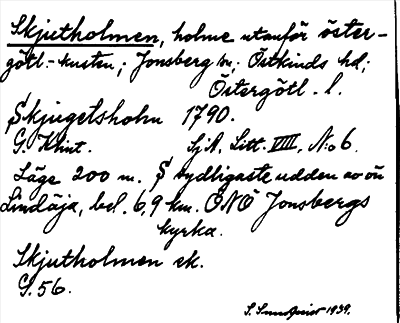 Skjutholmen, holme utanför öster-
götl.-kusten; Jonsberg sn; Östkinds hd;
Östergötl. l.
Skjugelsholm 1790.
G. Klint. SjA, Litt. VIII, N:o 6.
Läge 200 m. S sydligaste udden av ön
Lindöja, bel. 6,9 km. ONO Jonsbergs
kyrka.
Skjutholmen ek.
G. 56.
S. 1939.